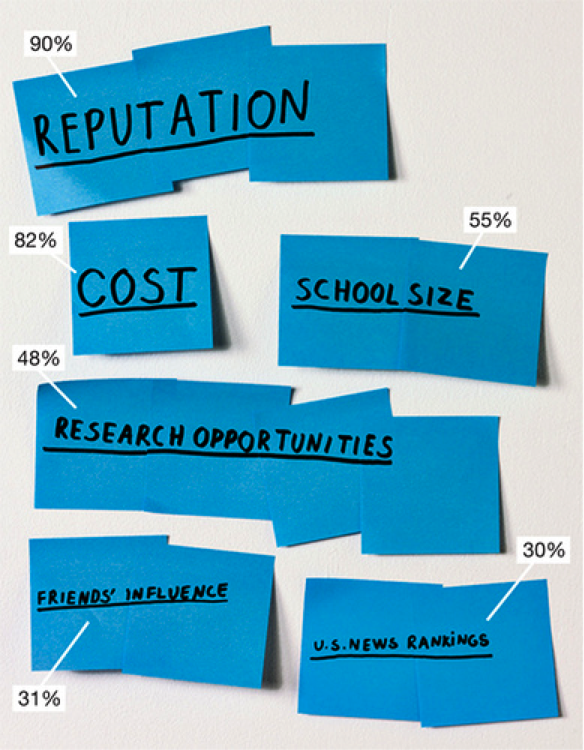 90%
REPUTATION
82%
COST
55%
SCHOOL SIZE
48%
RESEARCH OPPORTUNITIES
31%
FRIENDS' INFLUENCE
30%
U.S. NEWS RANKINGS